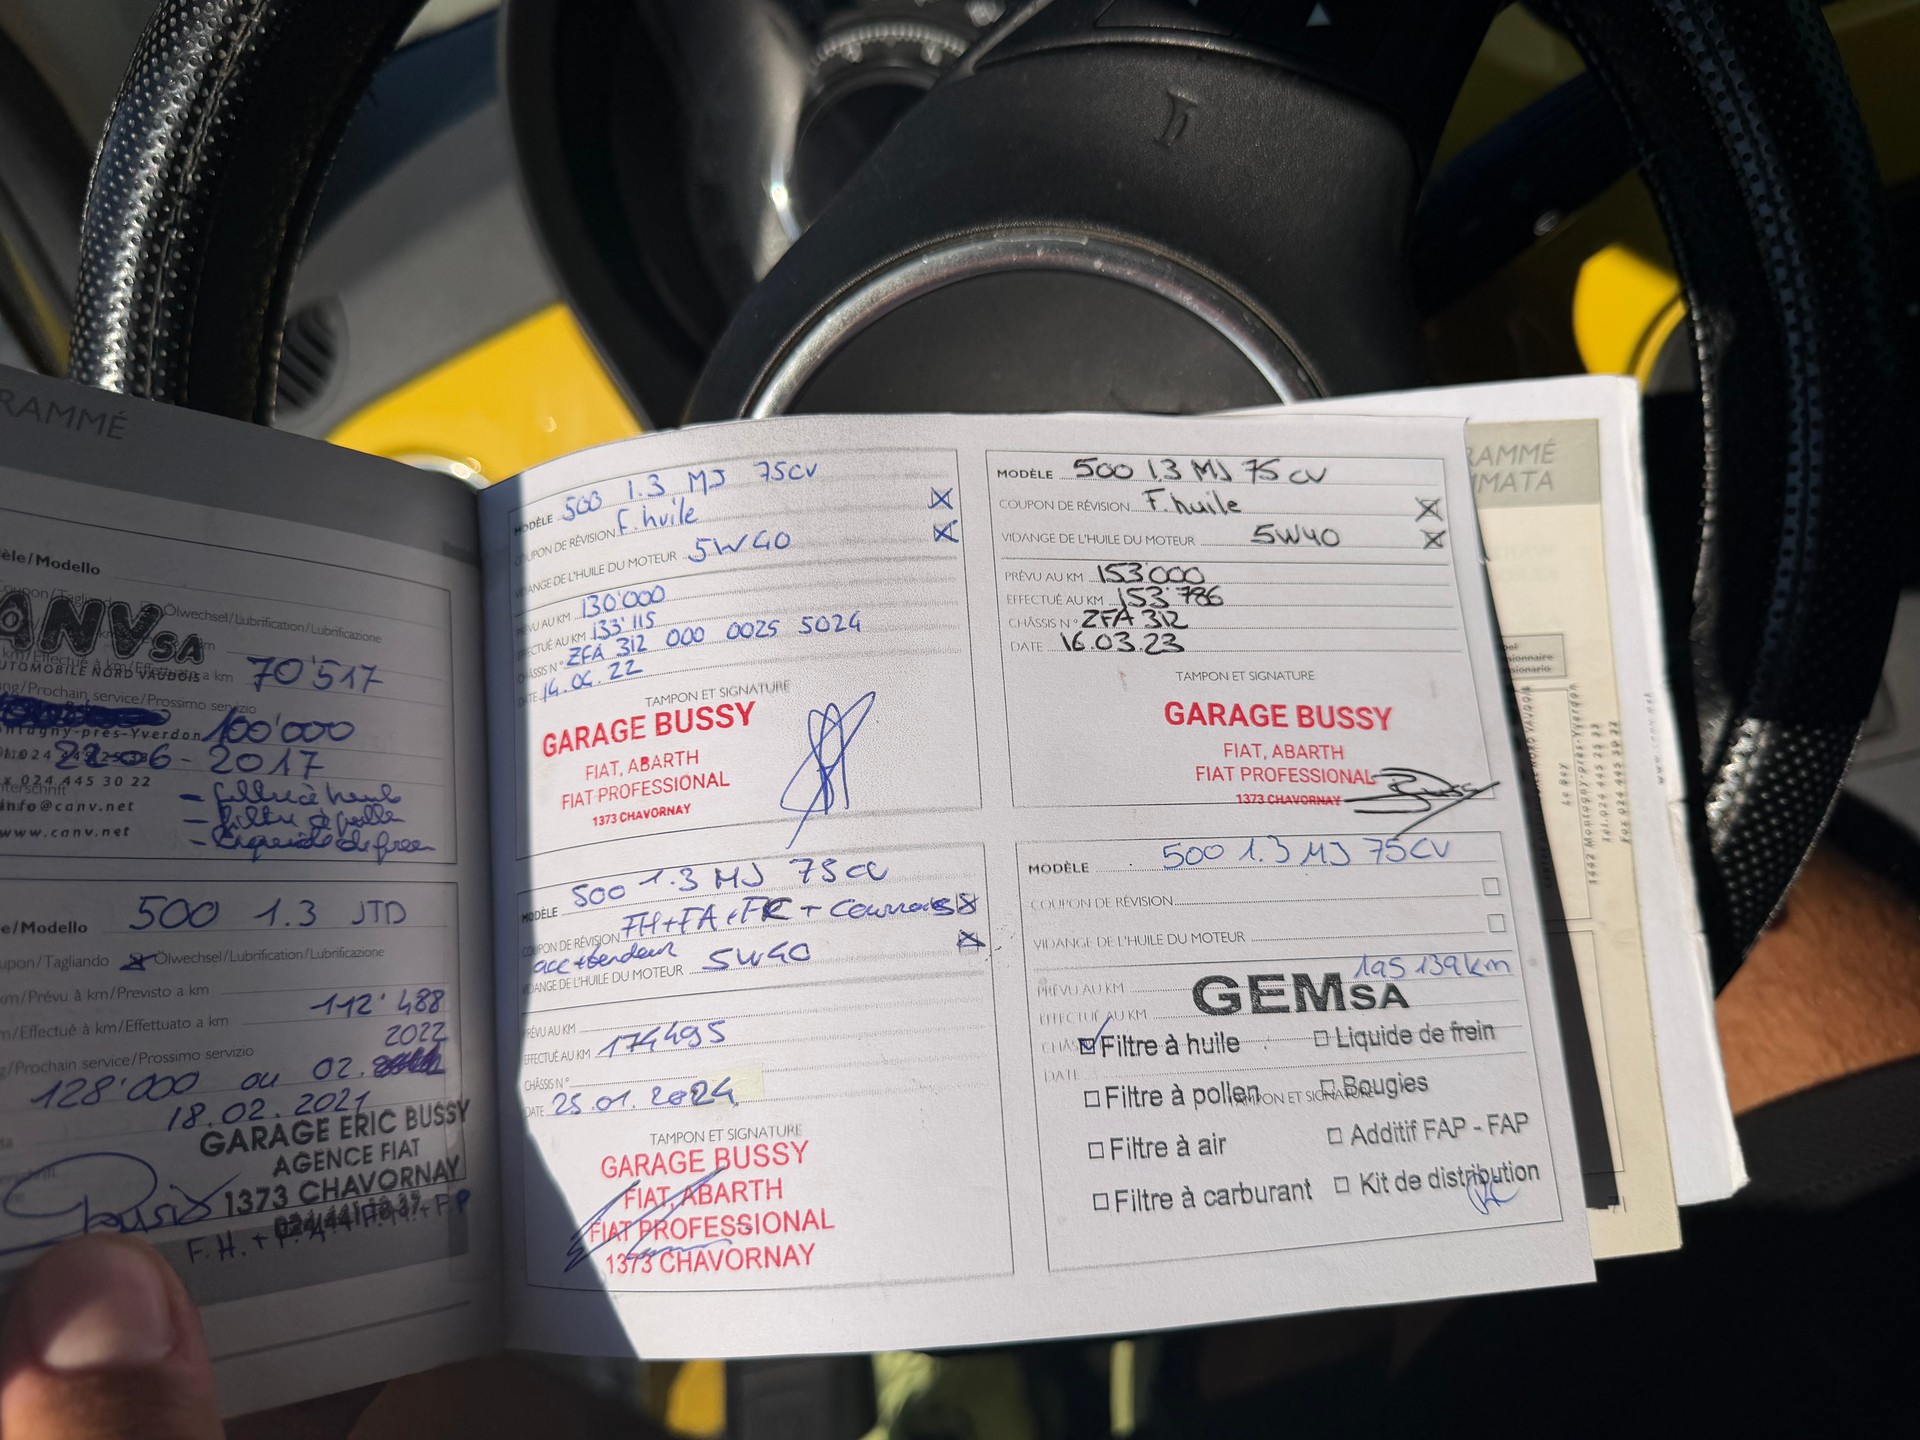 RAMMÉ
èle/Modello
Ölwechsel/Lubrification/Lubrificazione
ANV SA
AUTOMOBILE NORD VAUDOIS
km/Effectué à km/Effettuato a km 70'517
ng/Prochain service/Prossimo servizio
100'000
ntagny-près-Yverdon
22-06-2017
x 024 445 30 22
info@canv.net
www.canv.net
- filtre à huile
- filtre à pollen
- liquide de frein
e/Modello 500 1.3 JTD
upon/Tagliando Ölwechsel/Lubrification/Lubrificazione
km/Prévu à km/Previsto a km
112'488
m/Effectué à km/Effettuato a km
2022
g/Prochain service/Prossimo servizio
128'000 ou 02.
18.02.2021
GARAGE ERIC BUSSY
AGENCE FIAT
1373 CHAVORNAY
F.H. +
MODÈLE 500 1.3 MJ 75CV
COUPON DE RÉVISION F.huile
VIDANGE DE L'HUILE DU MOTEUR 5W40
PRÉVU AU KM 130'000
EFFECTUÉ AU KM 133'115
CHÂSSIS N° ZFA 312 000 0025 5024
DATE 14.04.22
TAMPON ET SIGNATURE
GARAGE BUSSY
FIAT, ABARTH
FIAT PROFESSIONAL
1373 CHAVORNAY
MODÈLE 500 1.3 MJ 75CV
COUPON DE RÉVISION FH+FA+FC + Courroies
acc + tendeur
VIDANGE DE L'HUILE DU MOTEUR 5W40
PRÉVU AU KM
EFFECTUÉ AU KM 174495
CHÂSSIS N°
DATE 25.01.2024
TAMPON ET SIGNATURE
GARAGE BUSSY
FIAT, ABARTH
FIAT PROFESSIONAL
1373 CHAVORNAY
MODÈLE 500 1.3 MJ 75 CV
COUPON DE RÉVISION F.huile
VIDANGE DE L'HUILE DU MOTEUR 5W40
PRÉVU AU KM 153'000
EFFECTUÉ AU KM 153'786
CHÂSSIS N° ZFA 312
DATE 16.03.23
TAMPON ET SIGNATURE
GARAGE BUSSY
FIAT, ABARTH
FIAT PROFESSIONAL
1373 CHAVORNAY
MODÈLE 500 1.3 MJ 75CV
COUPON DE RÉVISION
VIDANGE DE L'HUILE DU MOTEUR
195 139km
PRÉVU AU KM
GEM SA
EFFECTUÉ AU KM
CHÂS
Filtre à huile
Liquide de frein
DATE
Filtre à pollen
Bougies
TAMPON ET SIGNATURE
Filtre à air
Additif FAP - FAP
Filtre à carburant
Kit de distribution
RAMMÉ
MATA
sionnaire
sionario
1442 Montagny-près-Yverdon
Tél. 024 445 25 23
Fax 024 445 30 22